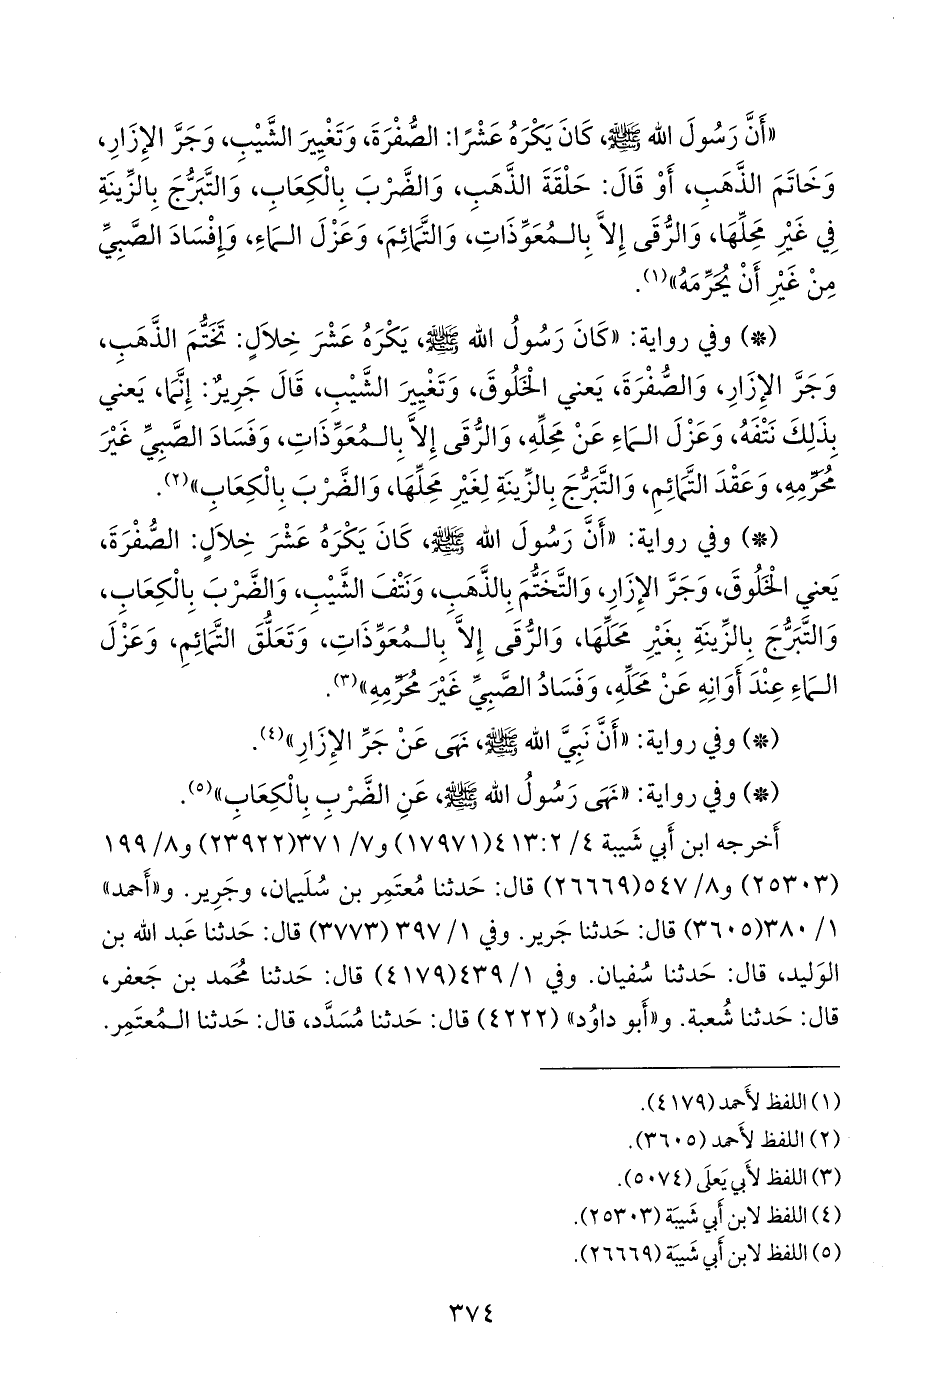 «أَنَّ رَسُولَ الله ﷺ، كَانَ يَكْرَهُ عَشْرًا: الصُّفْرَةَ، وَتَغْيِيرَ الشَّيْبِ، وَجَرَّ الإِزَارِ،
وَخَاتَمَ الذَّهَبِ، أَوْ قَالَ: حَلْقَةَ الذَّهَبِ، وَالضَّرْبَ بِالْكِعَابِ، وَالتَّبَرُّجَ بِالزِّينَةِ
فِي غَيْرِ مَحِلِّهَا، وَالرُّقَى إِلاَّ بِالـمُعَوِّذَاتِ، وَالتَّمَائِمَ، وَعَزْلَ الـمَاءِ، وَإِفْسَادَ الصَّبِيِّ
مِنْ غَيْرِ أَنْ يُحَرِّمَهُ»(١).
(*) وفي رواية: «كَانَ رَسُولُ الله ﷺ، يَكْرَهُ عَشْرَ خِلاَلٍ: تَخَتُّمَ الذَّهَبِ،
وَجَرَّ الإِزَارِ، وَالصُّفْرَةَ، يَعني الْخَلُوقَ، وَتَغْيِيرَ الشَّيْبِ، قَالَ جَرِيرٌ: إِنَّمَا، يَعني
بِذَلِكَ نَتْفَهُ، وَعَزْلَ الـمَاءِ عَنْ مَحِلِّهِ، وَالرُّقَى إِلاَّ بِالـمُعَوِّذَاتِ، وَفَسَادَ الصَّبِيِّ غَيْرَ
مُحَرِّمِهِ، وَعَقْدَ التَّمَائِمِ، وَالتَّبَرُّجَ بِالزِّينَةِ لِغَيْرِ مَحِلِّهَا، وَالضَّرْبَ بِالْكِعَابِ»(٢).
(*) وفي رواية: «أَنَّ رَسُولَ الله ﷺ، كَانَ يَكْرَهُ عَشْرَ خِلاَلٍ: الصُّفْرَةَ،
يَعني الْخَلُوقَ، وَجَرَّ الإِزَارِ، وَالتَّخَتُّمَ بِالذَّهَبِ، وَنَتْفَ الشَّيْبِ، وَالضَّرْبَ بِالْكِعَابِ،
وَالتَّبَرُّجَ بِالزِّينَةِ بِغَيْرِ مَحَلِّهَا، وَالرُّقَى إِلاَّ بِالـمُعَوِّذَاتِ، وَتَعَلُّقَ التَّمَائِمِ، وَعَزْلَ
الـمَاءِ عِنْدَ أَوَانِهِ عَنْ مَحَلِّهِ، وَفَسَادُ الصَّبِيِّ غَيْرَ مُحَرِّمِهِ»(٣).
(*) وفي رواية: «أَنَّ نَبِيَّ الله ﷺ، نَهَى عَنْ جَرِّ الإِزَارِ»(٤).
(*) وفي رواية: «نَهَى رَسُولُ الله ﷺ، عَنِ الضَّرْبِ بِالْكِعَابِ»(٥).
أَخرجه ابن أَبي شَيبة ٤/ ٤١٣:٢(١٧٩٧١) و٧/ ٣٧١(٢٣٩٢٢) و٨/ ١٩٩
(٢٥٣٠٣) و٨/ ٥٤٧(٢٦٦٦٩) قال: حَدثنا مُعتَمِر بن سُلَيمان، وجَرير. و«أَحمد»
١/ ٣٨٠(٣٦٠٥) قال: حَدثنا جَرير. وفي ١/ ٣٩٧ (٣٧٧٣) قال: حَدثنا عَبد الله بن
الوَليد، قال: حَدثنا سُفيان. وفي ١/ ٤٣٩(٤١٧٩) قال: حَدثنا مُحَمد بن جَعفر،
قال: حَدثنا شُعبة. و«أَبو داوُد» (٤٢٢٢) قال: حَدثنا مُسَدَّد، قال: حَدثنا الـمُعتَمِر.
(١) اللفظ لأَحمد (٤١٧٩).
(٢) اللفظ لأَحمد (٣٦٠٥).
(٣) اللفظ لأَبي يَعلَى (٥٠٧٤).
(٤) اللفظ لابن أَبي شَيبَة (٢٥٣٠٣).
(٥) اللفظ لابن أَبي شَيبَة (٢٦٦٦٩).
٣٧٤